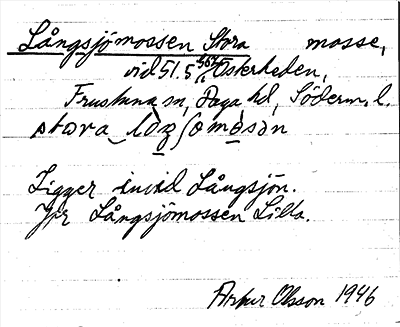 Långsjömossen Stora mosse,
vid 51.5 Österheden,
Frustuna sn, Daga hd, Söderm. l.
stora
Ligger invid Långsjön.
Jfr Långsjömossen Lilla.
Artur Olsson 1946